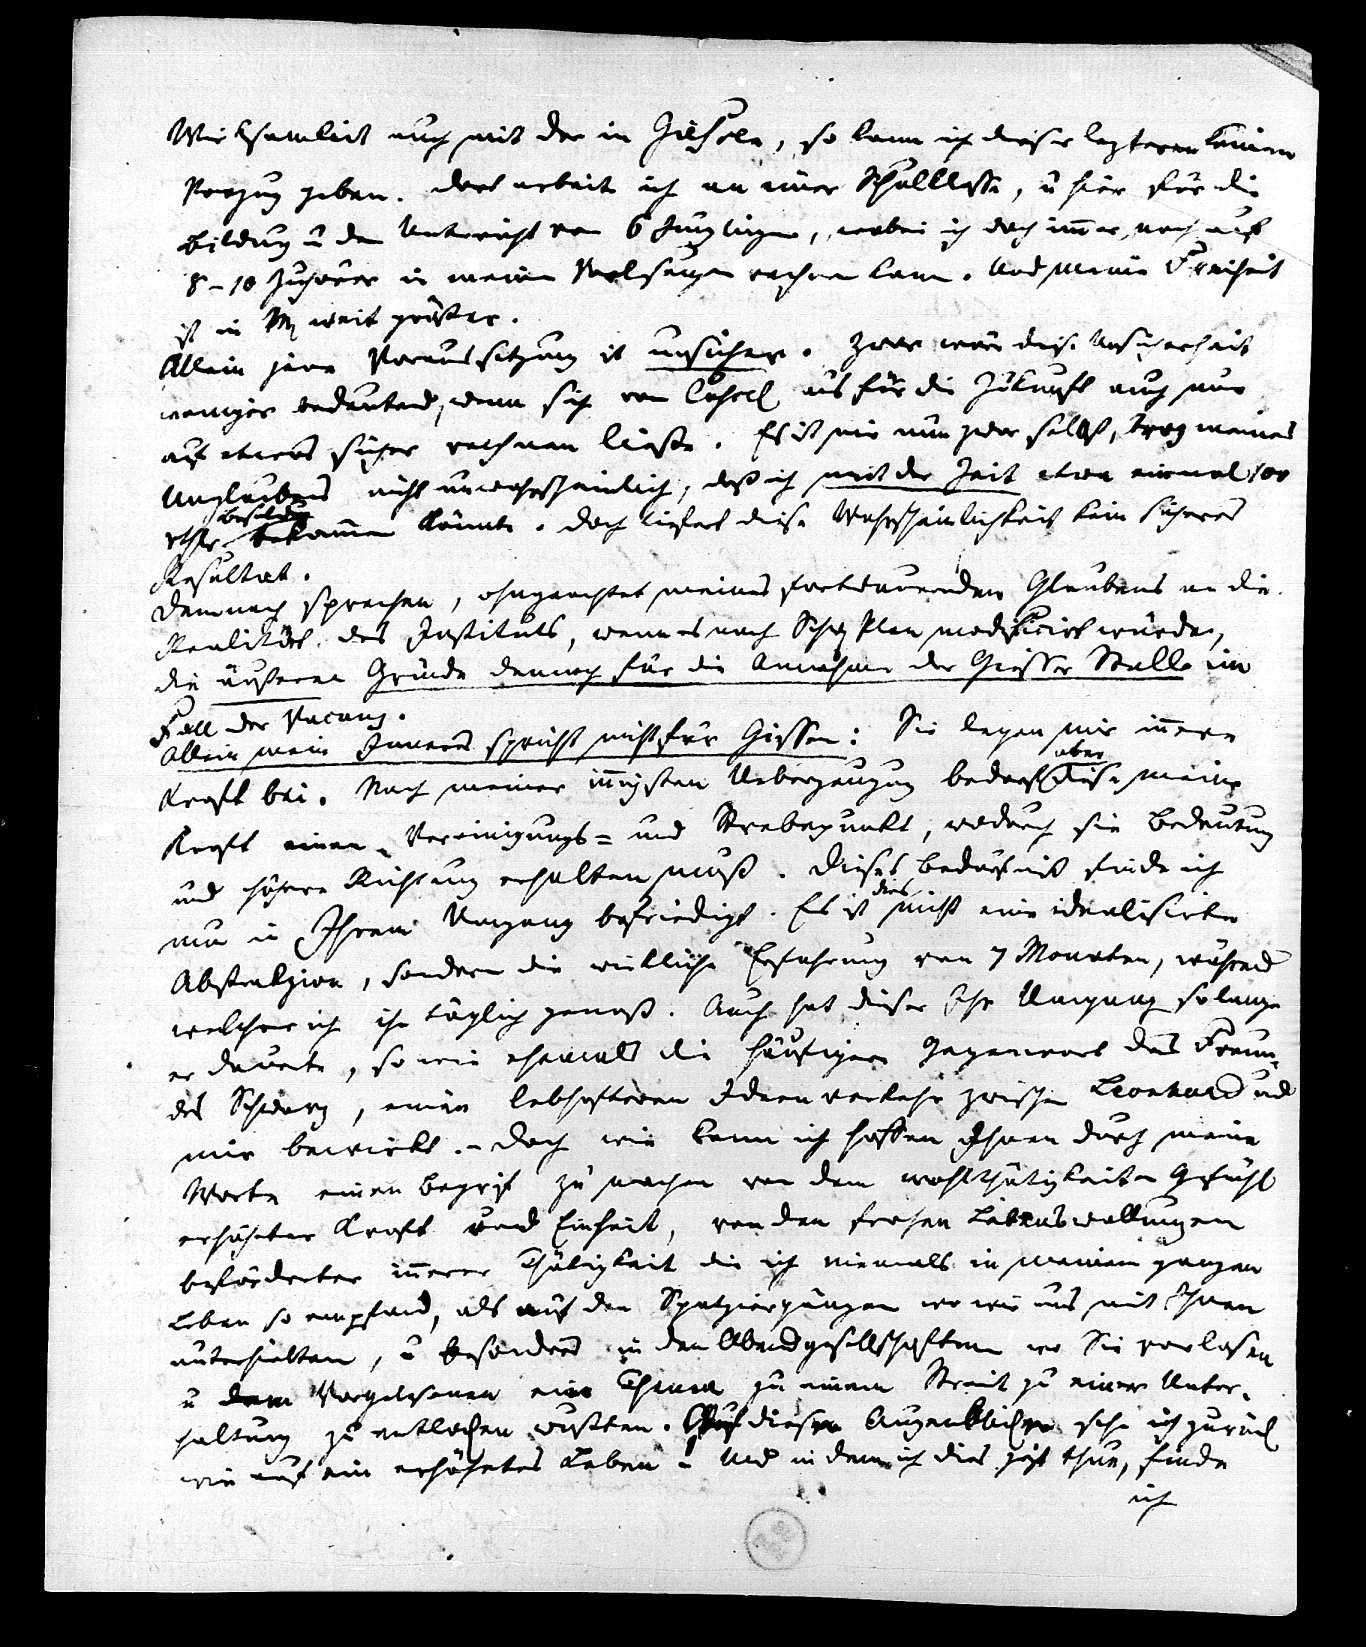 Wirksamkeit auch mit der in Gießen, so kann ich dieser lezteren keinen
Vorzug geben. Dort arbeit ich an einer Schulklasse, u hier für die
Bildung u den Unterricht von 6 Jünglingen, wobei ich doch im̅er noch auf
8-10 Zuhörer in meinen Vorlesungen rechnen kann. Und meine Freiheit
ist in M weit größer.
Allein jene Voraussetzung ist unsicher. Zwar wäre diese Unsicherheit
weniger bedeutend, wenn sich von Cassel aus für die Zukunft auch nur
auf etwas sicher rechnen ließe. Es ist mir nun zwar selbst, troz meines
Unglaubens nicht unwahrscheinlich, daß ich mit der Zeit etwa einmal 100
rthlr. Besoldung bekom̅en könnte. Doch liefert diese Wahrscheinlichkeit kein sicheres
Resultat.
Demnach sprechen, ohngeachtet meines fortdauernden Glaubens an die
Realität des Instituts, wenn es nach Plan modificirt würde,
die äußeren Gründe dennoch für die Annahme der Giesser Stelle im
Fall der Vacanz.
Allein mein Inneres spricht nicht für Giessen: Sie legen mir in̅ere
Kraft bei. Nach meiner in̅igsten Ueberzeugung bedarf aber diese meine
Kraft einen Vereinigungs- und Strebepunkt, wodurch sie Bedeutung
und höhere Richtung erhalten muß. Dieses Bedürfniß finde ich
nur in Ihrem Umgang befriedigt. Es ist dies nicht eine idealisirte
Abstrakzion, sondern die wirkliche Erfahrung von 7 Monaten, während
welcher ich ihn täglich genoß. Auch hat dieser Ihr Umgang so lange
er dauerte, so wie ehemals die häufigere Gegenwart des Freun-
des Schwarz, einen lebhafteren Ideenverkehr zwischen Leonhard und
mir bewirkt. - Doch wie kann ich hoffen Ihnen durch meine
Worte einen Begrif zu machen von dem wohlthätigsten Gefühl
erhöhter Kraft und Einheit, von den frohen Lebenswallungen
beförderter in̅erer Thätigkeit die ich niemals in meinem ganzen
Leben so empfand, als auf den Spatziergängen wo wir uns mit Ihnen
unterhielten, u besonders in den Abendgesellschaften wo Sie vorlasen
u dem Vorgelesenen ein Thema zu einem Streit zu einer Unter-
haltung zu entlocken wußten. Auf diese Augenblicke sehe ich zurück
wie auf ein erhöhetes Leben! Und indem ich dies jezt thue, finde
ich